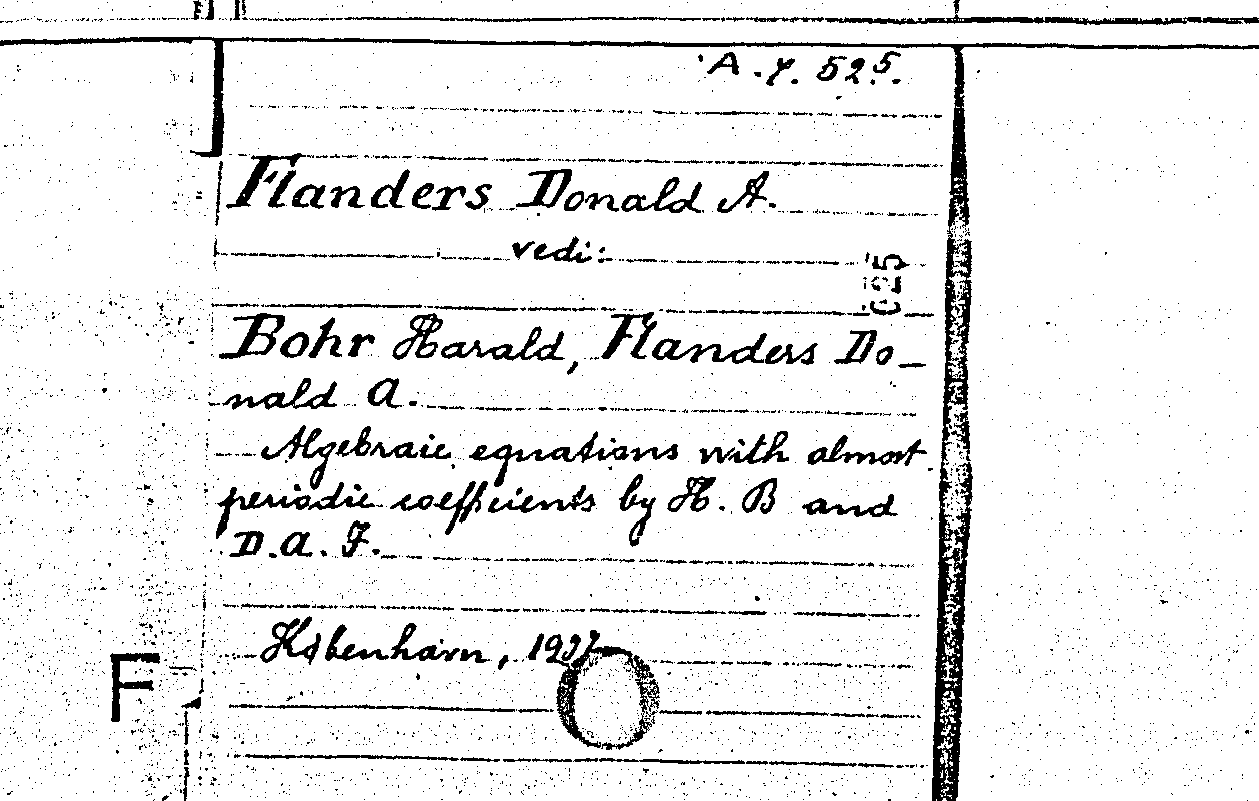 A.7.525.
Flanders Donald A.
vedi:
025
Bohr Harald, Flanders Do-
nald A.
Algebraic equations with almost
periodic coefficients by H. B and
D.A.F.
København, 1937
F